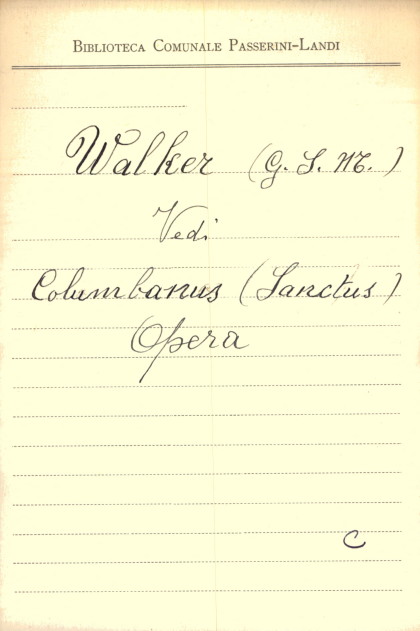 BIBLIOTECA COMUNALE PASSERINI-LANDI
Walker (G. S. M.)
Vedi
Columbanus (Sanctus)
Opera
C